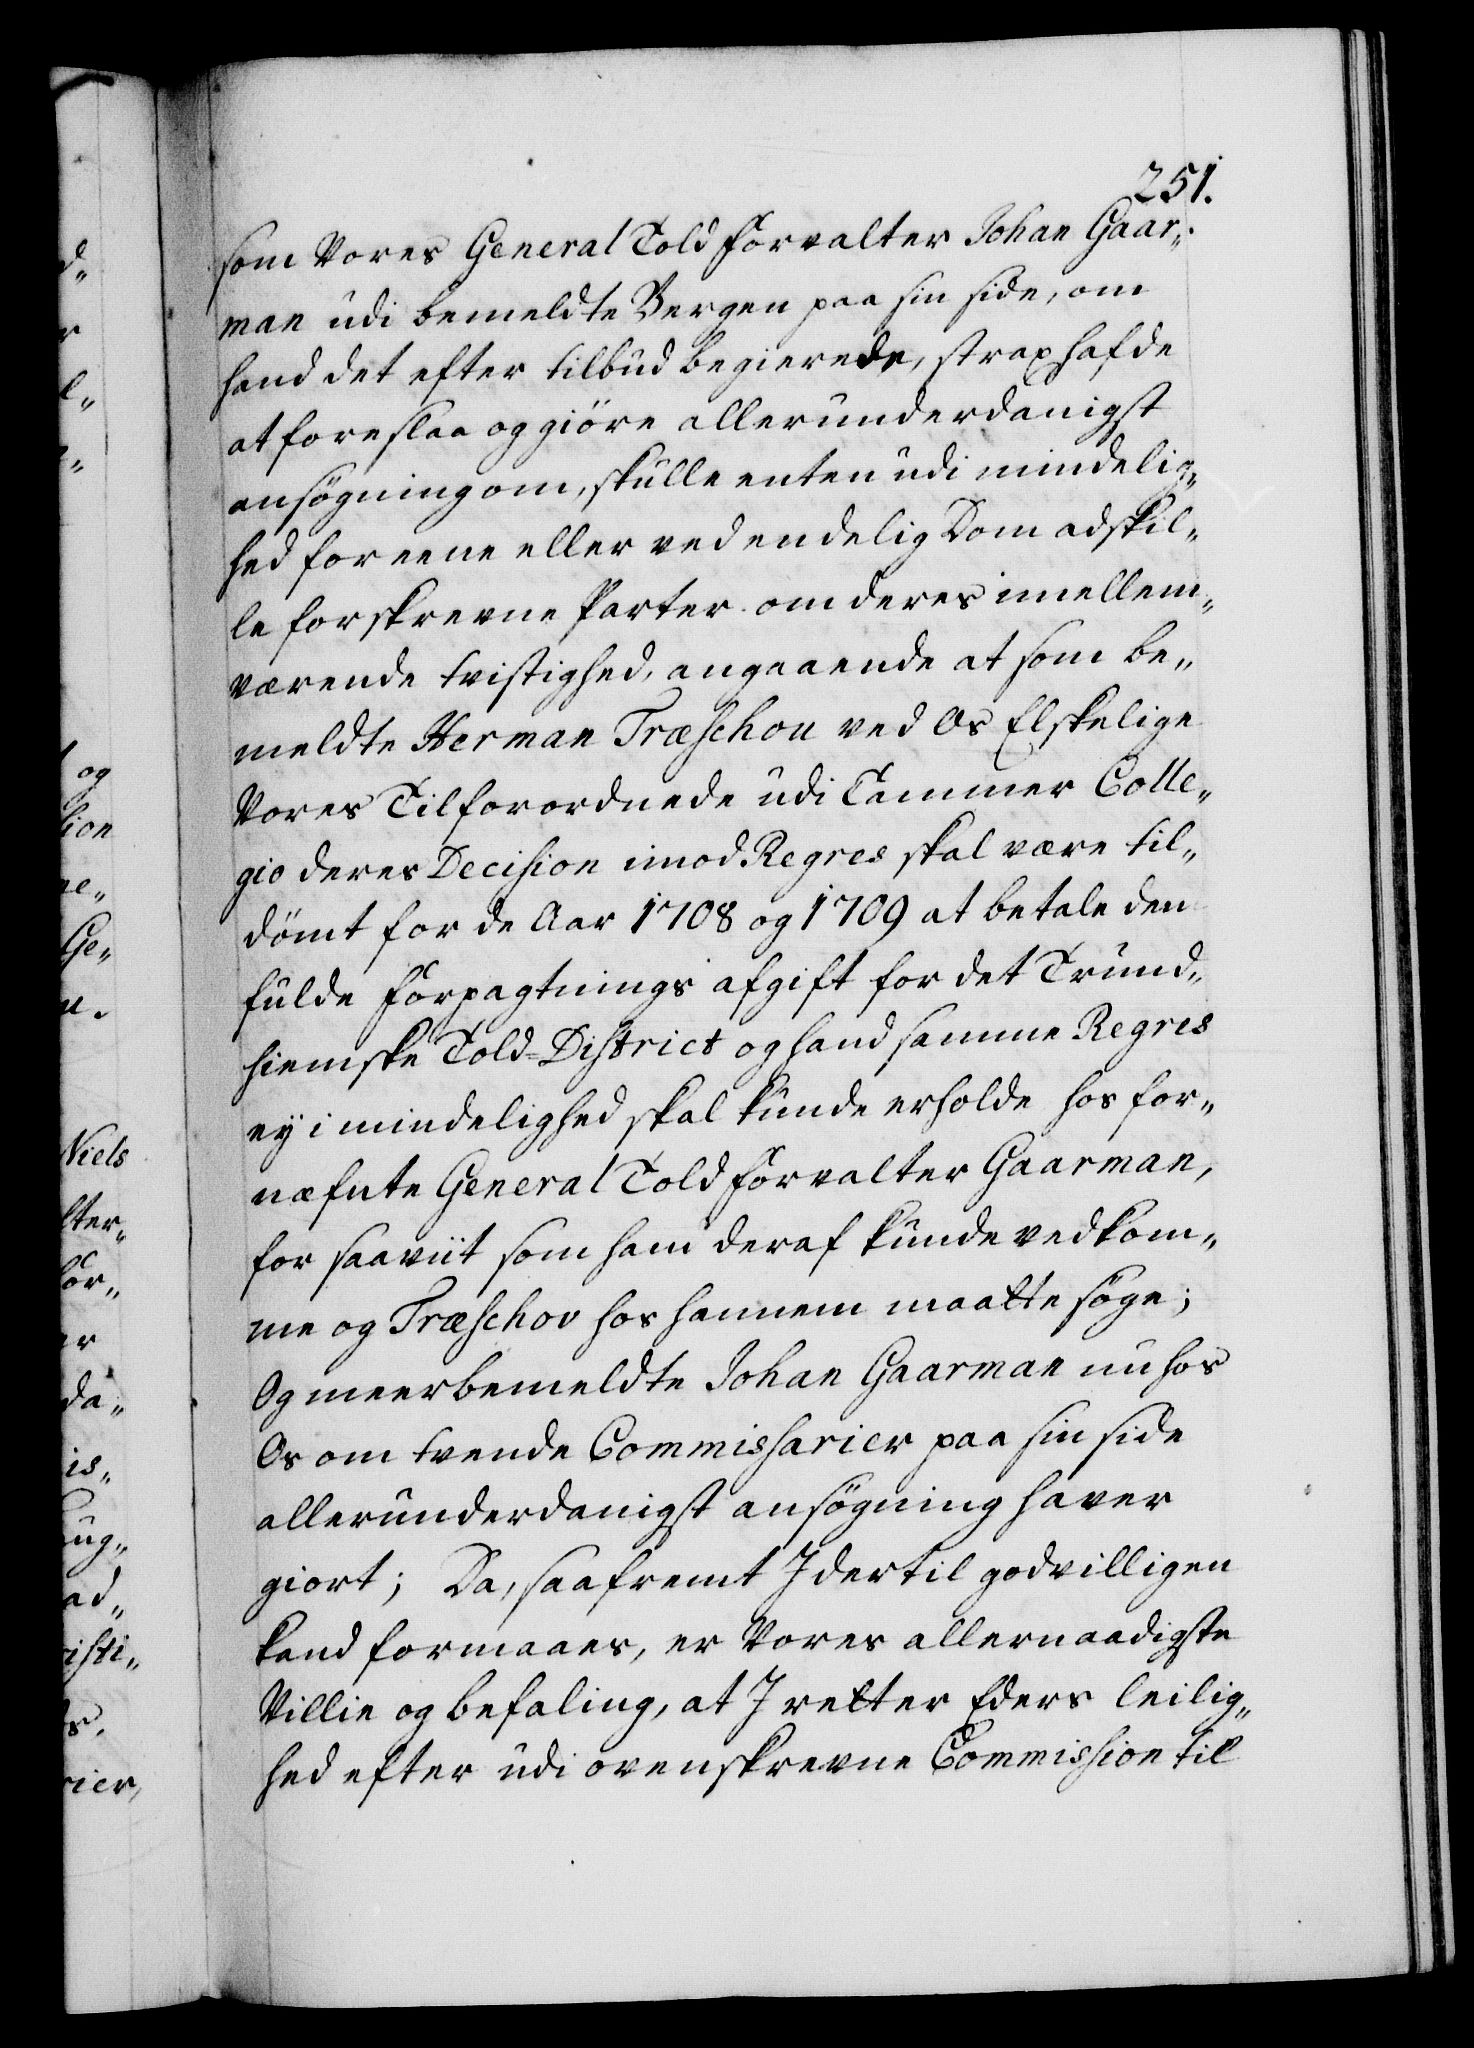 251.
som Vores General Told Forvalter Johan Gaar„
man udi bemeldte Bergen paa sin side, om
hand det efter tilbud begierede, strax hafde
at foreslaa og giöre allerunderdanigst
ansögning om, skulle enten udi mindelig„
hed foreene eller ved endelig Dom adskil„
le forskrevne Parter om deres imellem„
værende tvistighed, angaaende at som be„
meldte Herman Træschou ved Os Elskelige
Vores Tilforordnede udi Cammer Colle„
gio deres Decision imod Regres skal være til„
dömt for de Aar 1708 og 1709 at betale den
fulde Forpagtnings afgift for det Trund„
hiemske Told=District og hand samme Regres
ey i mindelighed skal kunde erholde hos for„
næfnte General Told Forvalter Gaarman,
for saaviit som ham deraf kunde vedkom„
me og Træschov hos hannem maatte söge;
Og meerbemeldte Johan Gaarman nu hos
Os om tvende Commissarier paa sin side
allerunderdanigst ansögning haver
giort; Da, saafremt I dertil godvilligen
kand formaaes, er Vores allernaadigste
Villie og befaling, at I retter Eders leilig„
hed efter udi ovenskrevne Commission til
d„
r
l„
og
sion
ne„
Ge„
n.
Niels
lter„
för„
er
da„
is„
ug„
ad„
risti„
s.
rier,